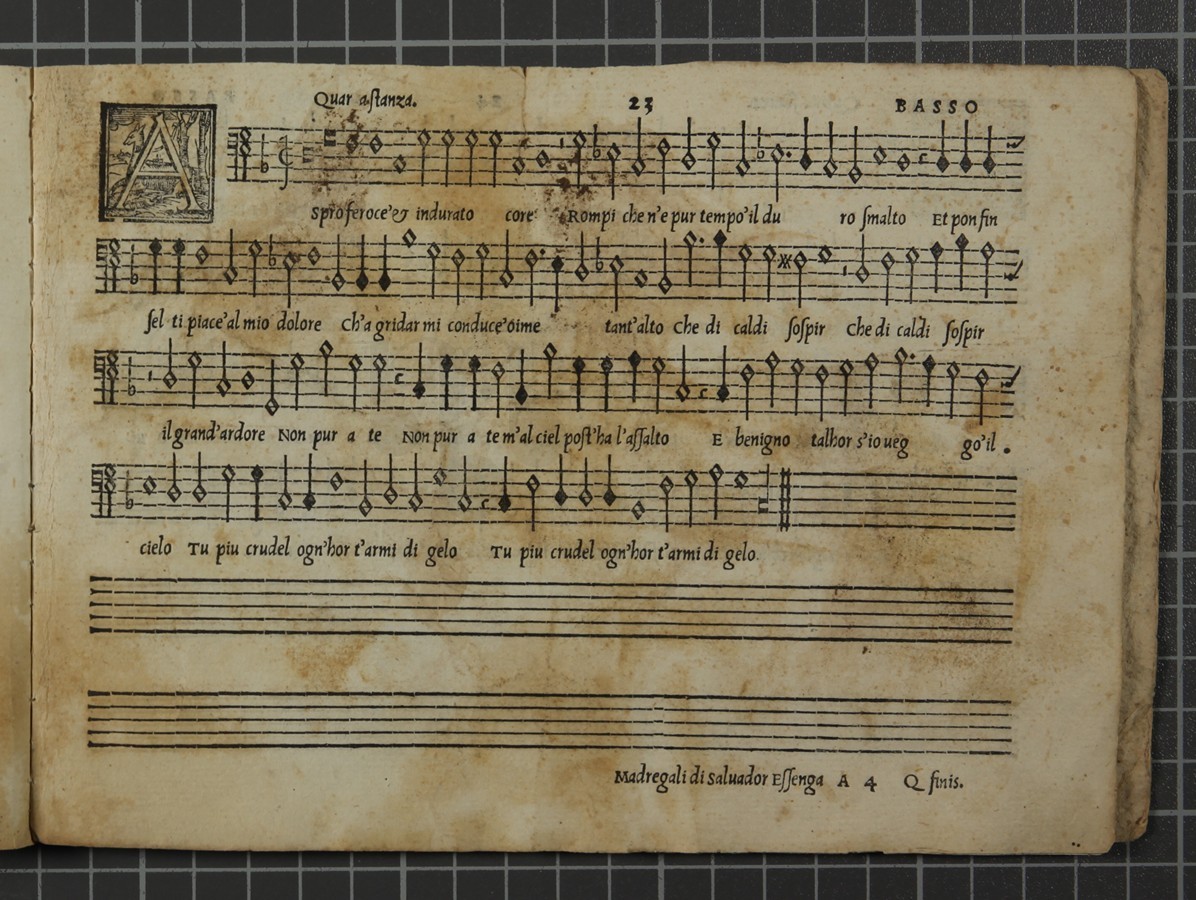 Quar astanza. 23 BASSO
A
spro feroce'& indurato core Rompi che n'e pur tempo'il du ro smalto Et pon fin
sel ti piace'al mio dolore Ch'a gridar mi conduce'oime tant'alto Che di caldi sospir Che di caldi sospir
il grand'ardore Non pur a te Non pur a te m'al ciel post'ha l'assalto E benigno talhor s'io ueg go'il .
cielo Tu piu crudel ogn'hor t'armi di gelo Tu piu crudel ogn'hor t'armi di gelo.
Madregali di Saluador Essenga A 4 Q finis.